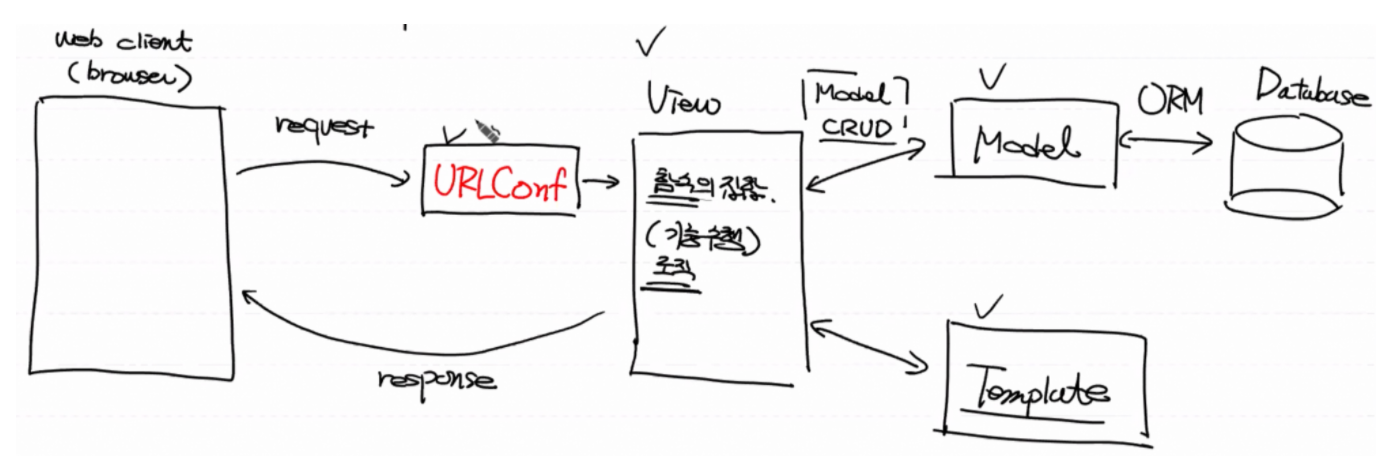 web client
(browser)
request
URLConf
View
함수의 집합.
(기능수행)
로직
Model
CRUD
Model
ORM
Database
Template
response